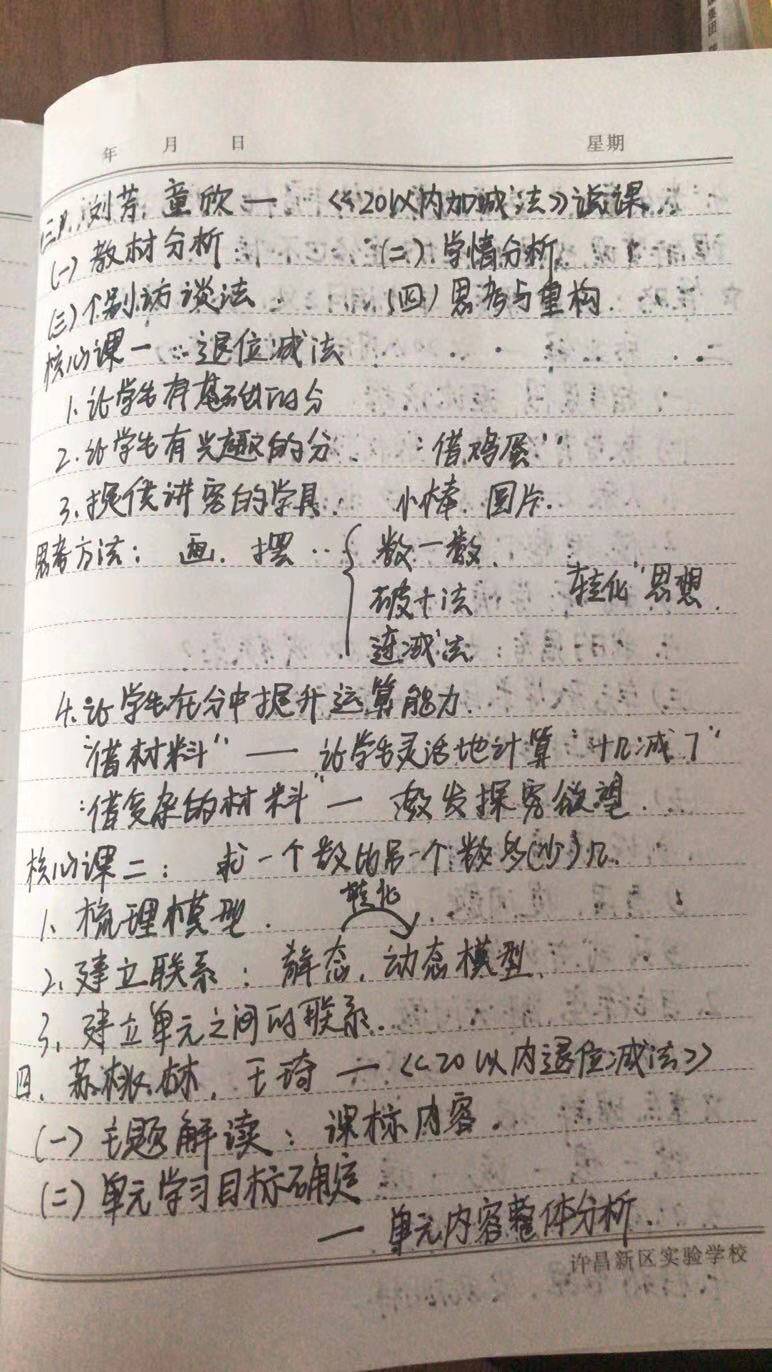 年 月 日 星期
三、刘芳, 童欣 — 《20以内加减法》说课
(一) 教材分析 (二) 学情分析
(三) 个别访谈法 (四) 思考与重构.
核心课一 : 退位减法
1. 让学生有基础的分
2. 让学生有兴趣的分 "借鸡蛋"
3. 提供讲究的学具: 小棒. 图片.
思考方法: 画. 摆 { 数一数.
破十法 "转化"思想.
连减法
4. 让学生在分中提升运算能力.
"借材料" — 让学生灵活地计算"十几减几"
"借复杂的材料" — 激发探究欲望.
核心课二: 求一个数比另一个数多(少)几.
1、梳理模型. 转化
2、建立联系: 静态. 动态模型.
3、建立单元之间的联系.
四. 苏桃林, 王琦 — 《20以内退位减法》
(一) 主题解读: 课标内容.
(二) 单元学习目标确定
— 单元内容整体分析.
许昌新区实验学校